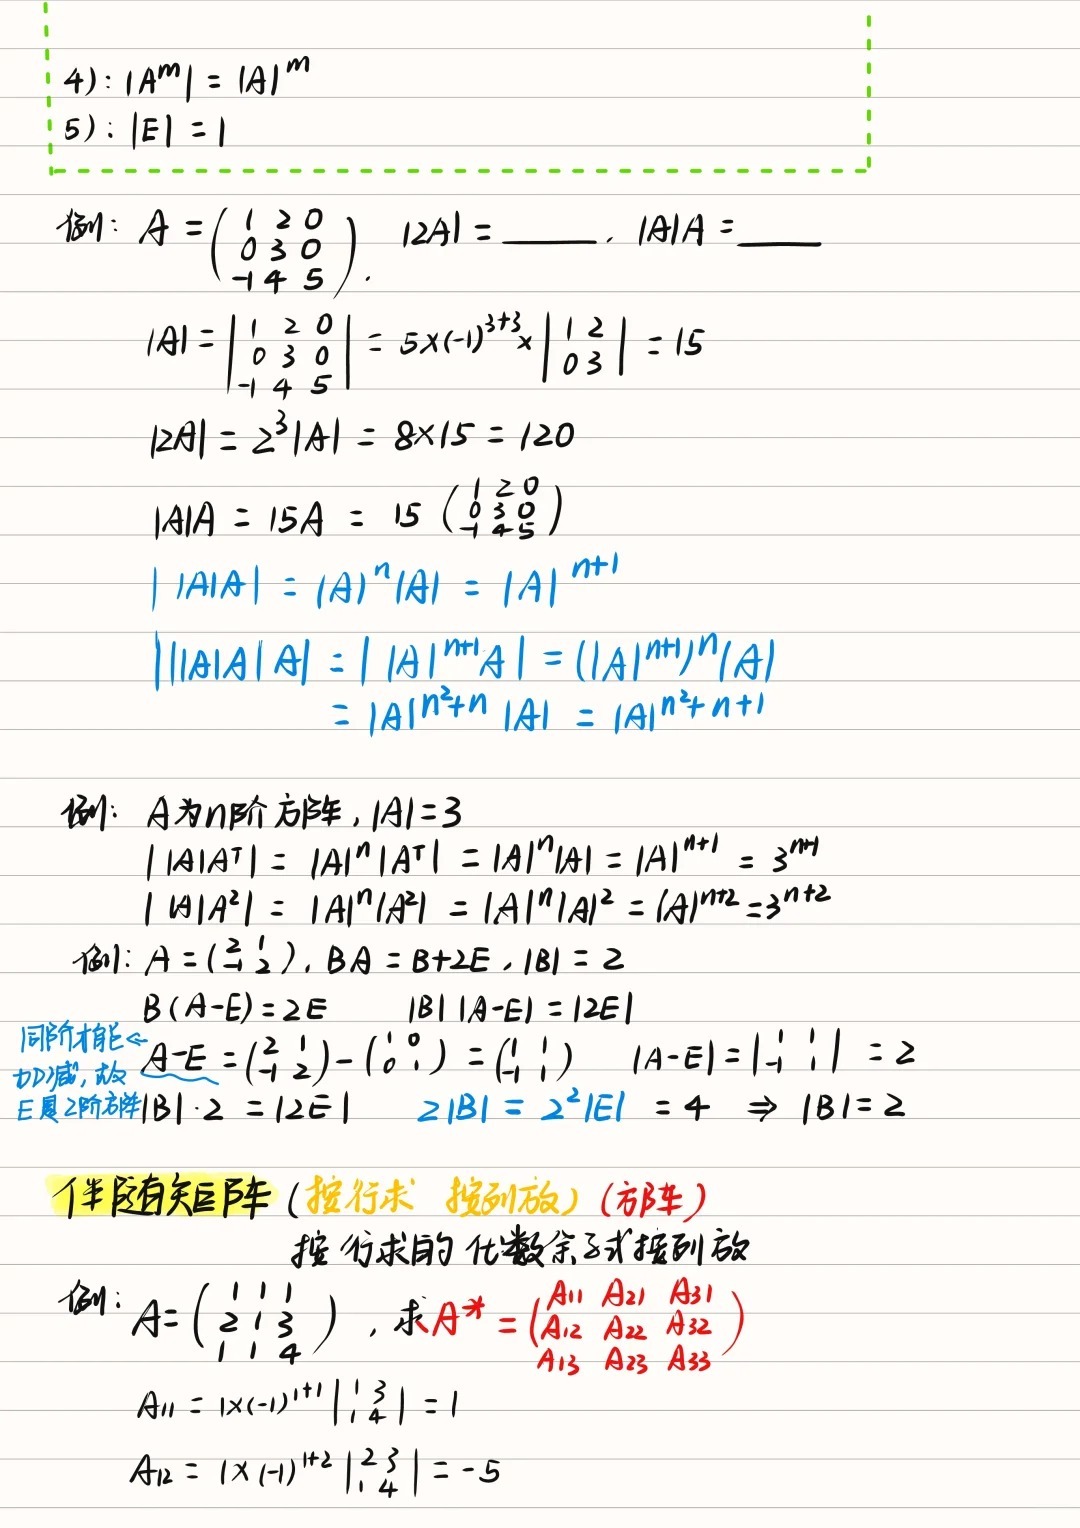 4): |A^m| = |A|^m
5): |E| = 1
例: A = ( 1 2 0 / 0 3 0 / -1 4 5 ). |2A| = ____. |A|A = ____
|A| = | 1 2 0 / 0 3 0 / -1 4 5 | = 5×(-1)^{3+3} × | 1 2 / 0 3 | = 15
|2A| = 2^3|A| = 8×15 = 120
|A|A = 15A = 15 ( 1 2 0 / 0 3 0 / -1 4 5 )
| |A|A | = |A|^n |A| = |A|^{n+1}
| ||A|A| A | = | |A|^{n+1} A | = (|A|^{n+1})^n |A|
= |A|^{n²+n} |A| = |A|^{n²+n+1}
例: A为n阶方阵, |A|=3
| |A|A^T | = |A|^n |A^T| = |A|^n |A| = |A|^{n+1} = 3^{n+1}
| |A|A² | = |A|^n |A²| = |A|^n |A|² = |A|^{n+2} = 3^{n+2}
例: A = ( 2 1 / -1 2 ), BA = B+2E, |B| = 2
B(A-E) = 2E |B| |A-E| = |2E|
同阶才能← A-E = ( 2 1 / -1 2 ) - ( 1 0 / 0 1 ) = ( 1 1 / -1 1 ) |A-E| = | 1 1 / -1 1 | = 2
加减, 故
E是2阶方阵 |B|·2 = |2E| 2|B| = 2²|E| = 4 ⇒ |B| = 2
伴随矩阵 (按行求 按列放) (方阵)
按行求的代数余子式按列放
例: A = ( 1 1 1 / 2 1 3 / 1 1 4 ), 求A* = ( A11 A21 A31 / A12 A22 A32 / A13 A23 A33 )
A11 = 1×(-1)^{1+1} | 1 3 / 1 4 | = 1
A12 = 1×(-1)^{1+2} | 2 3 / 1 4 | = -5